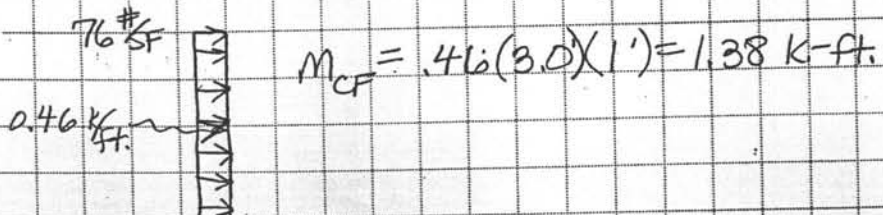 76 #/SF
M_CF = .46(3.0')(1') = 1.38 K-ft.
0.46 K/ft.